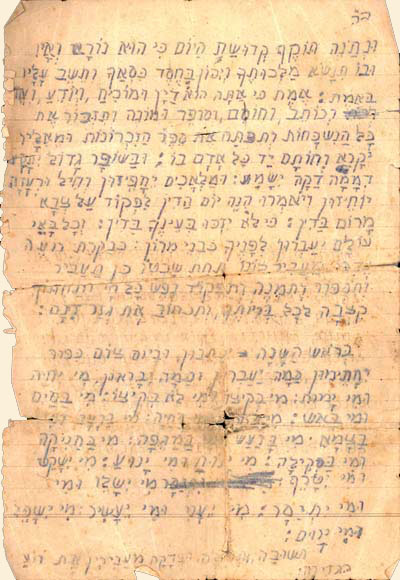 ונתנה תוקף קדושת היום כי הוא נורא ואיו
ובו תנשא מלכותך ויכון בחסד כסאך ותשב עליו
באמת: אמת כי אתה הוא דין ומוכיח, ויודע, ועד
וכותב, וחותם, וסופר ומונה ותזכור את
כל הנשכחות ותפתח את ספר הזכרונות ומאליו
יקרא וחותם יד כל אדם בו: ובשופר גדול
דממה דקה ישמע: ומלאכים יחפזון וחיל ורעדה
יאחזון ויאמרו הנה יום הדין לפקוד על צבא
מרום בדין: כי לא יזכו בעיניך בדין: וכל באי
עולם יעברון לפניך כבני מרון: כבקרת רועה
מעביר תחת שבטו כן תעביר
ותספור ותמנה ותפקוד נפש כל חי ותחתוך
קצבה לכל בריותיך, ותכתוב את גזר דינם:
בראש השנה יכתבון, וביום צום כפור
יחתימון כמה יעברון וכמה יבראון, מי יחיה
ומי ימות: מי בקיצו ומי לא בקיצו: מי במים
ומי באש: מי מי
בצמא מי ברעש במגפה: מי בחניקה
ומי בסקילה: מי ינוח ומי ינוע: מי ישקט
ומי ומי ישלו ומי
יתיסר: מי יעני ומי יעשיר מי ישפל
ומי ירום:
תשובה, וצדקה מעבירין את רוע
הגזירה: